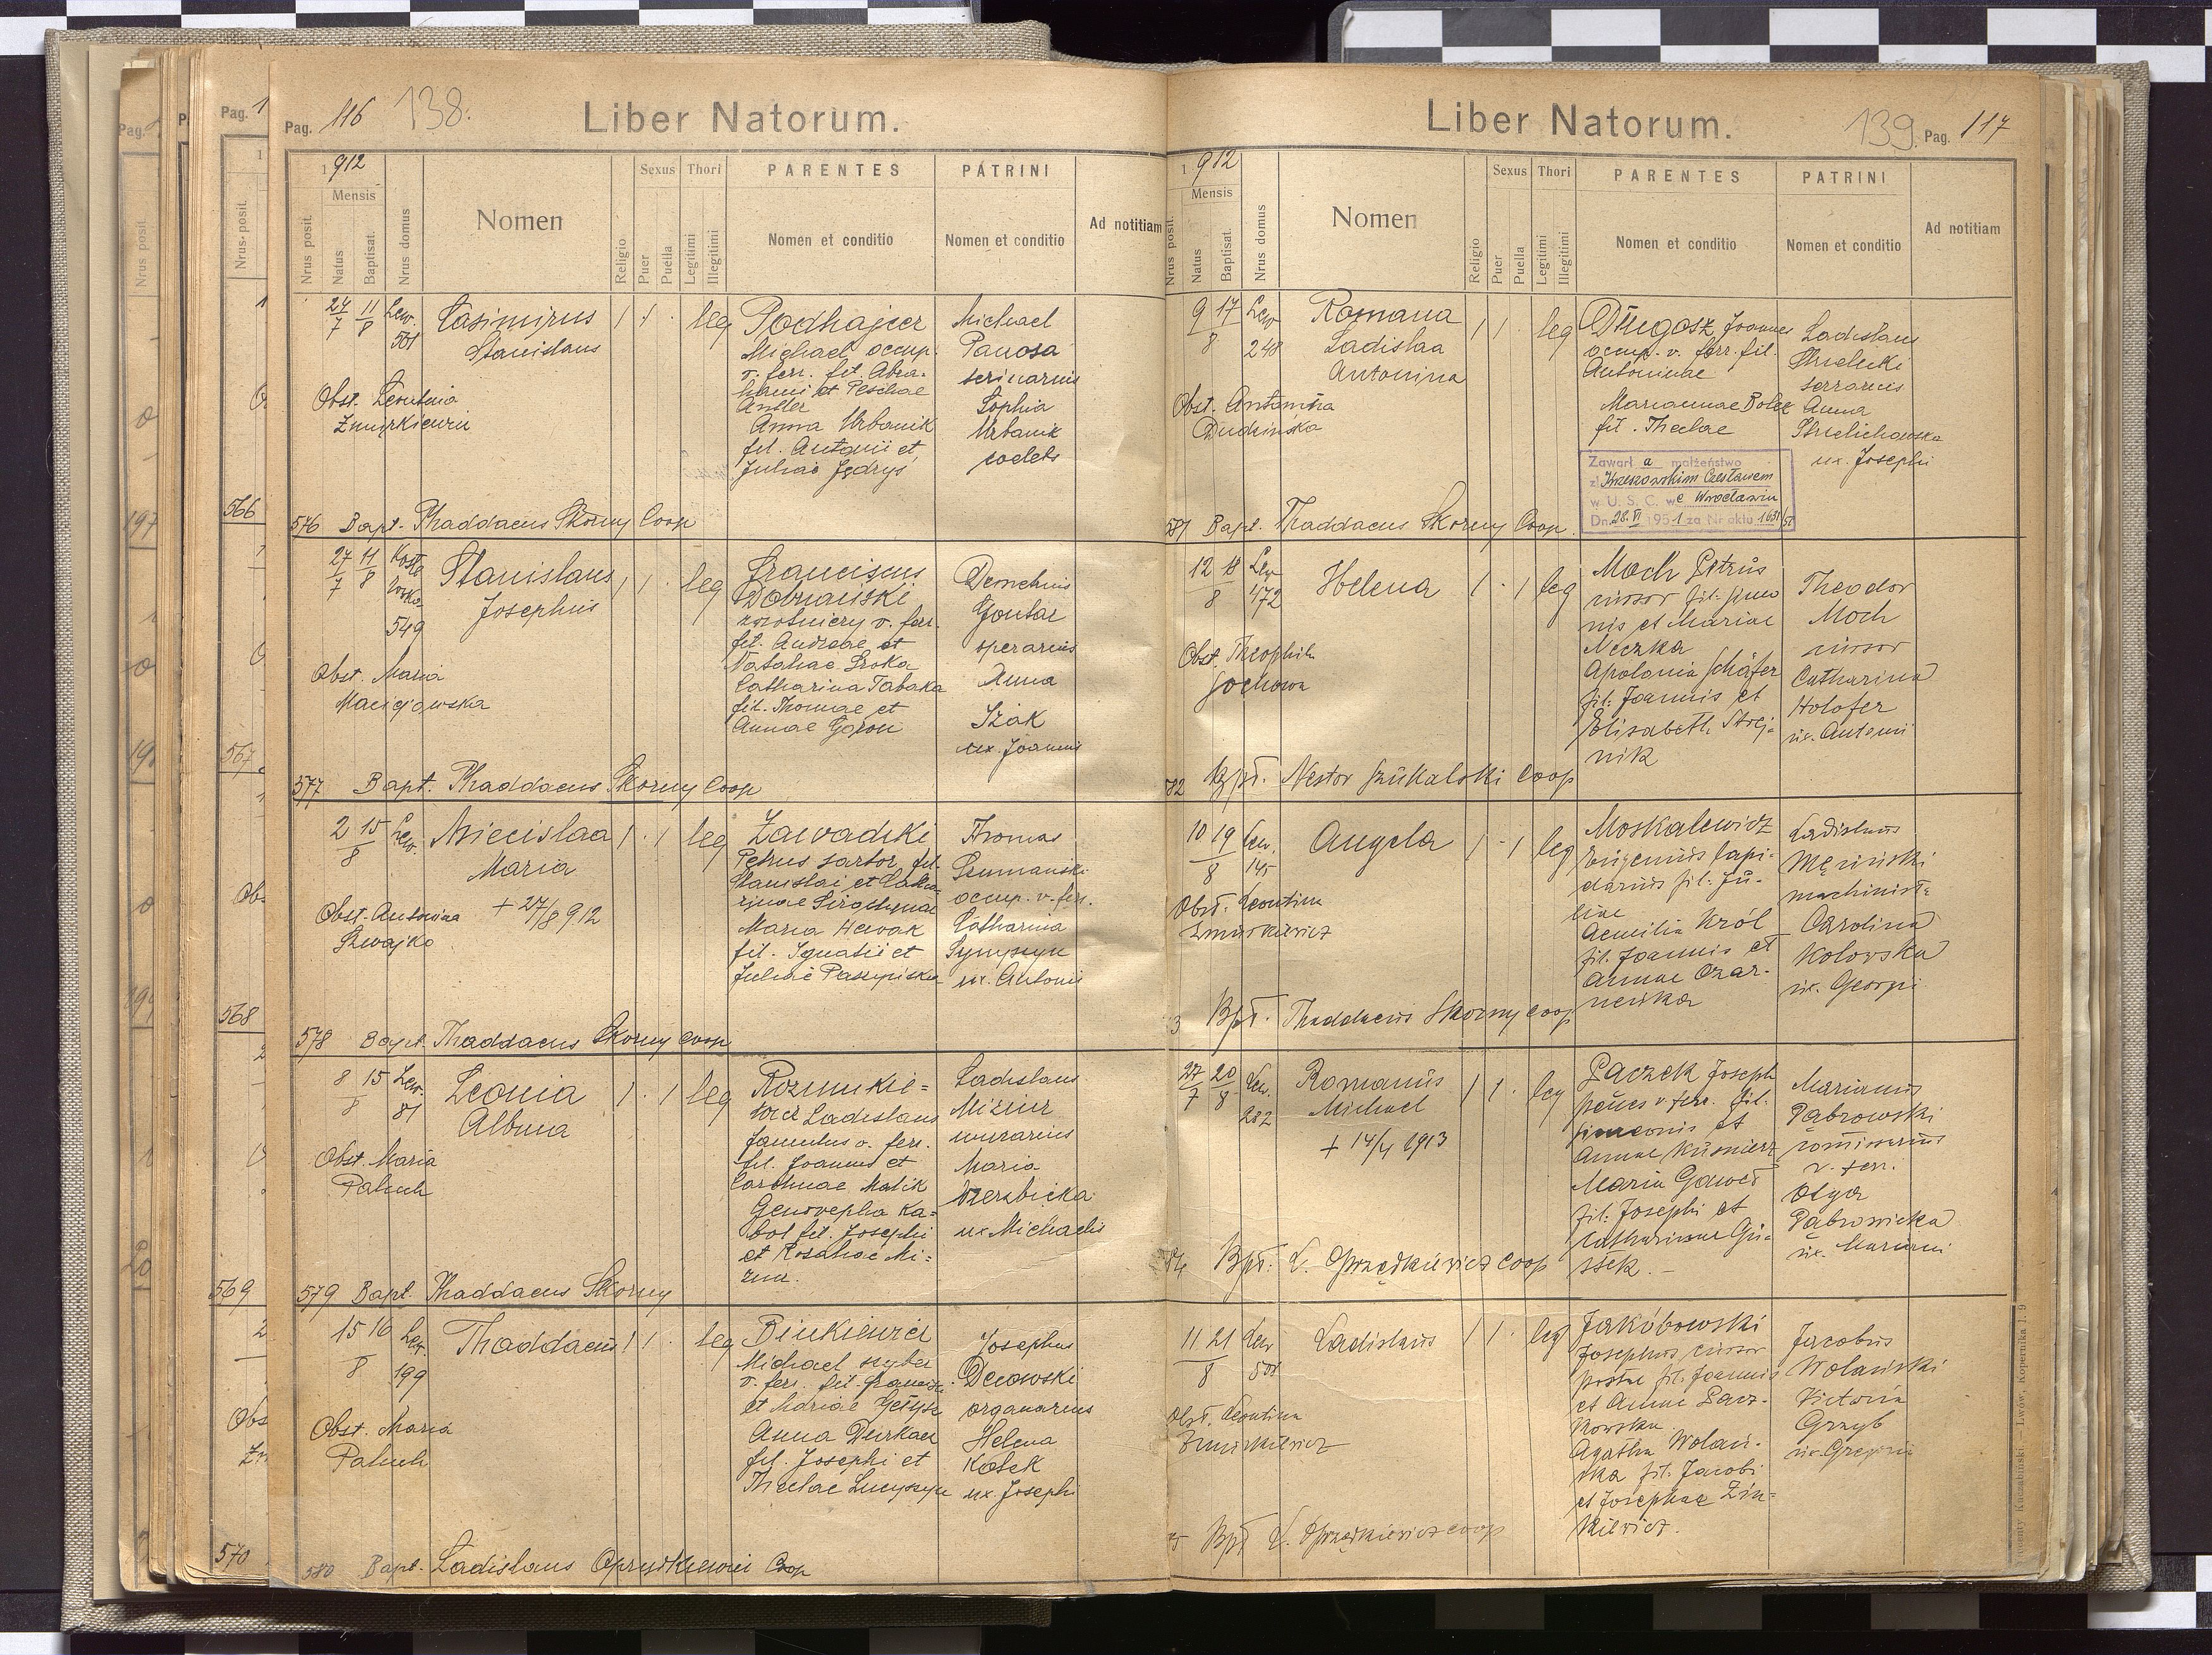 Pag. 116 138.
Liber Natorum.
1912
Mensis
Nrus posit.
Natus
Baptisat.
Nrus domus
Nomen
Religio
Sexus
Puer
Puella
Thori
Legitimi
Illegitimi
PARENTES
Nomen et conditio
PATRINI
Nomen et conditio
Ad notitiam
24/7 11/8 Lew. 501
Casimirus
Stanislaus
1 1 · leg
Podhajcer
Michael occup.
v. ferr. fil. Abra-
hami et Peschae
Antler
Anna Urbanik
fil. Antonii et
Juliae Jędrys
Michael
Panosa
Sophia
Urbanik
coelebs
Obst. Leontina
Żmurkiewicz
576 Bapt. Thaddaeus Skorny Coop
27/7 11/8 549
Stanislaus
Josephus
1 1 · leg
Franciscus
Dobrzański
zwrotniczy v. ferr.
fil. Andreae et
Nataliae Sroka
Catharina Tabaka
fil. Thomae et
Annae Goron
Demetrius
Gontar
operarius
Anna
Szak
ux. Joannis
Obst. Maria
Maciejowska
577 Bapt. Thaddaeus Skorny Coop
2 15/8 Lew.
Miecislaa
Maria
1 · 1 leg
+ 27/8 912
Zawadzki
Petrus sartor fil.
Stanislai et Catha-
Maria Nowak
fil. Ignatii et
Thomas
Szumański
occup. v. ferr.
Catharina
ux. Antonii
Obst. Antonina
Szwajko
578 Bapt. Thaddaeus Skorny Coop
8 15/8 Lew. 81
Leonia
Albina
1 · 1 leg
Rozmukie-
wicz Ladislaus
famulus v. ferr.
fil. Joannis et
Carolinae Malik
Genovepha Ka-
bol fil. Josephi
et Rosaliae Mi-
Ladislaus
murarius
Maria
Wierzbicka
ux Michaelis
Obst. Maria
Paluch
579 Bapt. Thaddaeus Skorny
15 16/8 Lew. 199
Thaddaeus
1 1 · leg
Binkiewicz
Michael szyber
v. ferr. fil. Francisci
et Mariae
Anna Durkacz
fil. Josephi et
Theclae
Josephus
Decowski
organarius
Helena
Kotek
ux. Josephi
Obst. Maria
Paluch
580 Bapt. Ladislaus Coop
Liber Natorum.
139. Pag. 117
1912
Mensis
Nrus posit.
Natus
Baptisat.
Nrus domus
Nomen
Religio
Sexus
Puer
Puella
Thori
Legitimi
Illegitimi
PARENTES
Nomen et conditio
PATRINI
Nomen et conditio
Ad notitiam
9 17/8 Lew 248
Romana
Ladislaa
Antonina
1 1 · leg
Długosz Joannes
occup. v. ferr. fil.
Antoninae
Mariannae Bolek
fil. Theclae
Ladislaus
Strzelecki
serrarius
Anna
Strzelichowska
ux. Josephi
Obst. Antonina
Dudzińska
Zawarł a małżeństwo
z Krzeszowskim Czesławem
w U. S. C. we Wrocławiu
Dn. 28.VI 1951 za Nr aktu 1631/51
581 Bapt. Thaddaeus Skorny Coop.
12 18/8 Lew 472
Helena
1 · 1 leg
Moch Petrus
cursor fil. Joan
nis et Mariae
Neczka
Apolonia Schäfer
fil. Joannis et
Elisabeth Strej-
nik
Theodor
Moch
cursor
Catharina
Holofer
ux. Antonii
Obst. Theophila
Jochowa
82 Bpt. Nestor Szukalski Coop
10 19/8 Lew. 145
Angela
1 · 1 leg
Moskalewicz
Eugenius lapi-
darius fil. Ju-
liae
Aemilia Król
fil. Joannis et
Annae Czar-
necka
Ladislaus
machinista
Carolina
Kolowska
ux. Georgi
Obst. Leontina
Żmurkiewicz
3 Bpt. Thaddaeus Skorny coop
27/7 20/8 Lew. 282
Romanus
Michael
1 1 · leg
+ 14/4 1913
Paczek Joseph
v ferr. fil.
Simeonis et
Annae Kusnierz
Maria Gaweł
fil. Josephi et
Catharinae Gu-
ssek.
Marianus
Dąbrowski
v. ferr.
Olga
Dąbrowska
ux. Mariani
84 Bpt. L. Oprządkiewicz coop
11 21/8 Lew 501
Ladislaus
1 1 · leg
Jakóbowski
Josephus cursor
postae fil. Joannis
et Annae Pacz-
kowska
Agatha Wolań-
ska fil. Jacobi
et Josephae Zin-
kiewicz.
Jacobus
Wolański
Victoria
Grzyb
ux. Gregorii
Obst. Leontina
Żmurkiewicz
5 Bpt L. Oprządkiewicz coop
Pag. 1
566
567
568
569
570